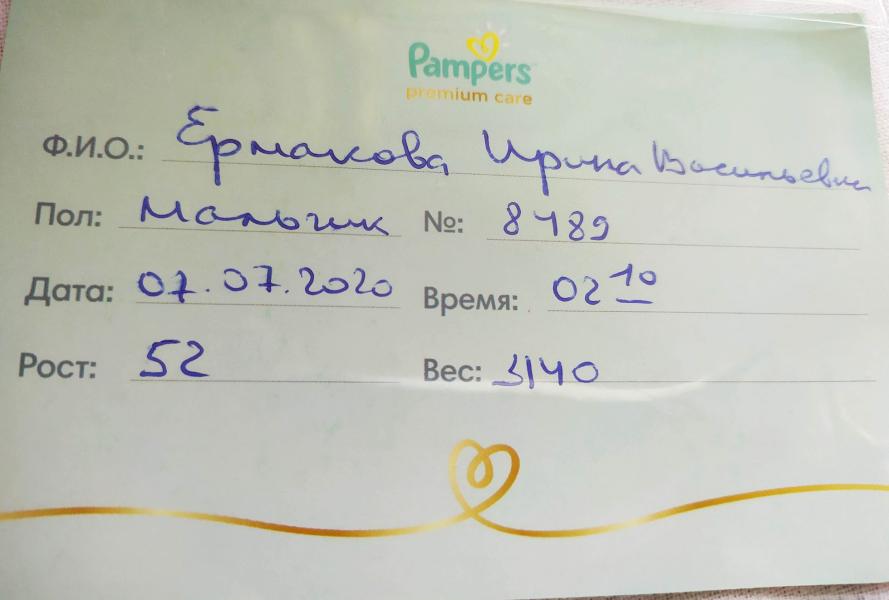 Pampers
premium care
Ф.И.О.: Ермакова Ирина Васильевна
Пол: Мальчик №: 8489
Дата: 07.07.2020 Время: 02 10
Рост: 52 Вес: 3140